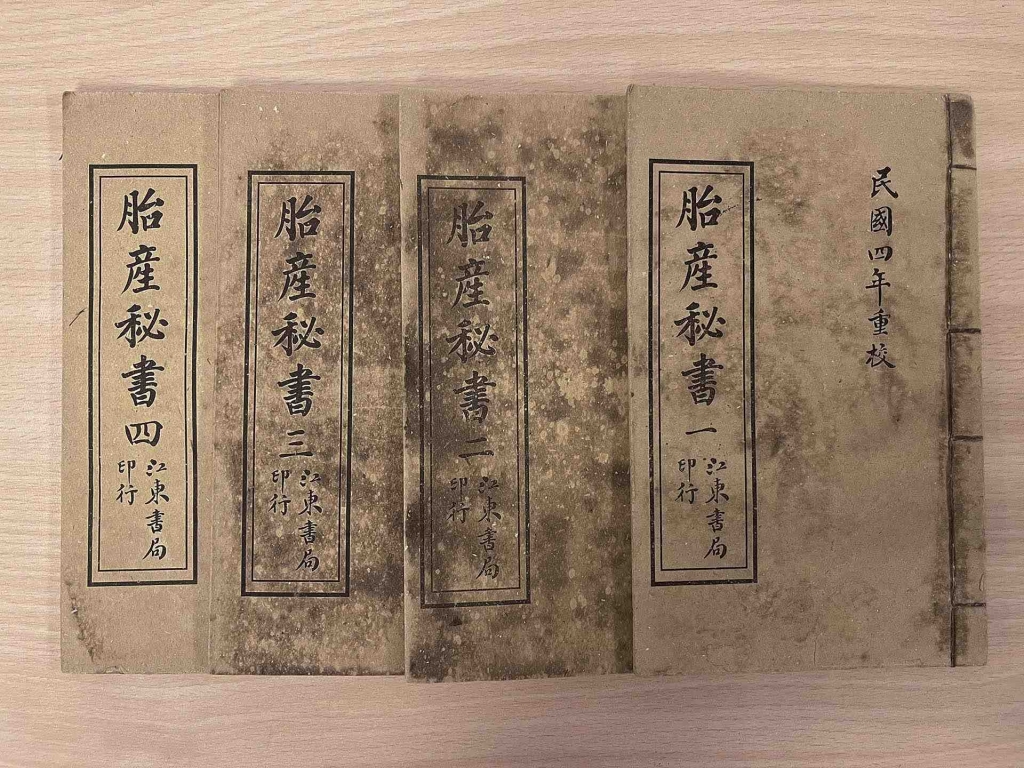 民國四年重校
胎產秘書一
江東書局
印行
胎產秘書二
江東書局
印行
胎產秘書三
江東書局
印行
胎產秘書四
江東書局
印行